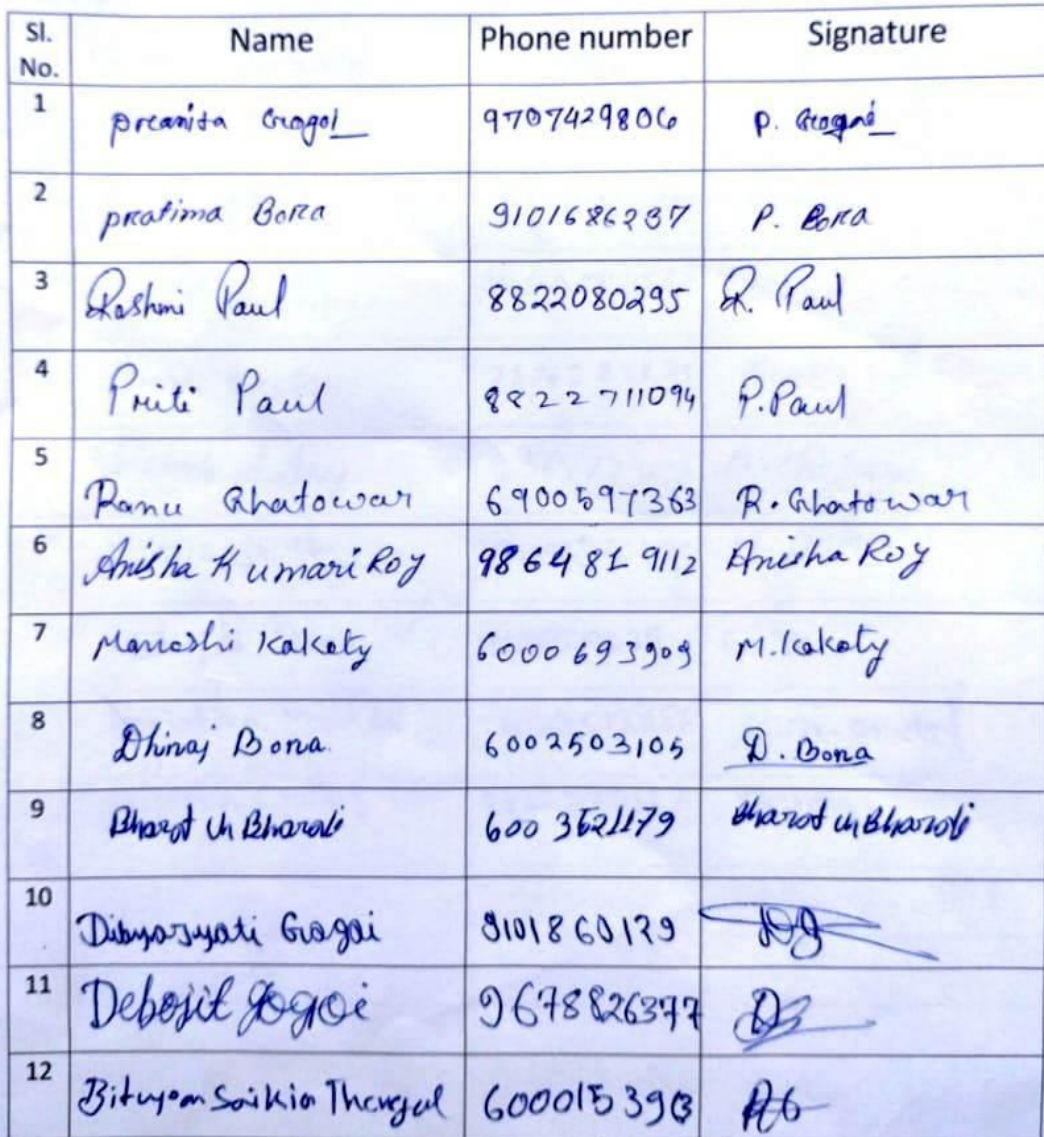 Sl. No. Name Phone number Signature
1 Preanita Gogoi 9707429806 P. Gogoi
2 Pratima Bora 9101686237 P. Bora
3 Rashmi Paul 8822080295 R. Paul
4 Priti Paul 8822711094 P. Paul
5 Ranu Ghatowar 6900597363 R. Ghatowar
6 Anisha Kumari Roy 9864819112 Anisha Roy
7 Manashi Kakoty 6000693909 M. Kakoty
8 Dhiraj Bora 6002503105 D. Bora
9 Bharat Ch Bharali 6003521179 Bharat Ch Bharali
10 Dibyajyoti Gogoi 9101860129
11 Debojit Gogoi 9678826377
12 Saikia Thengal